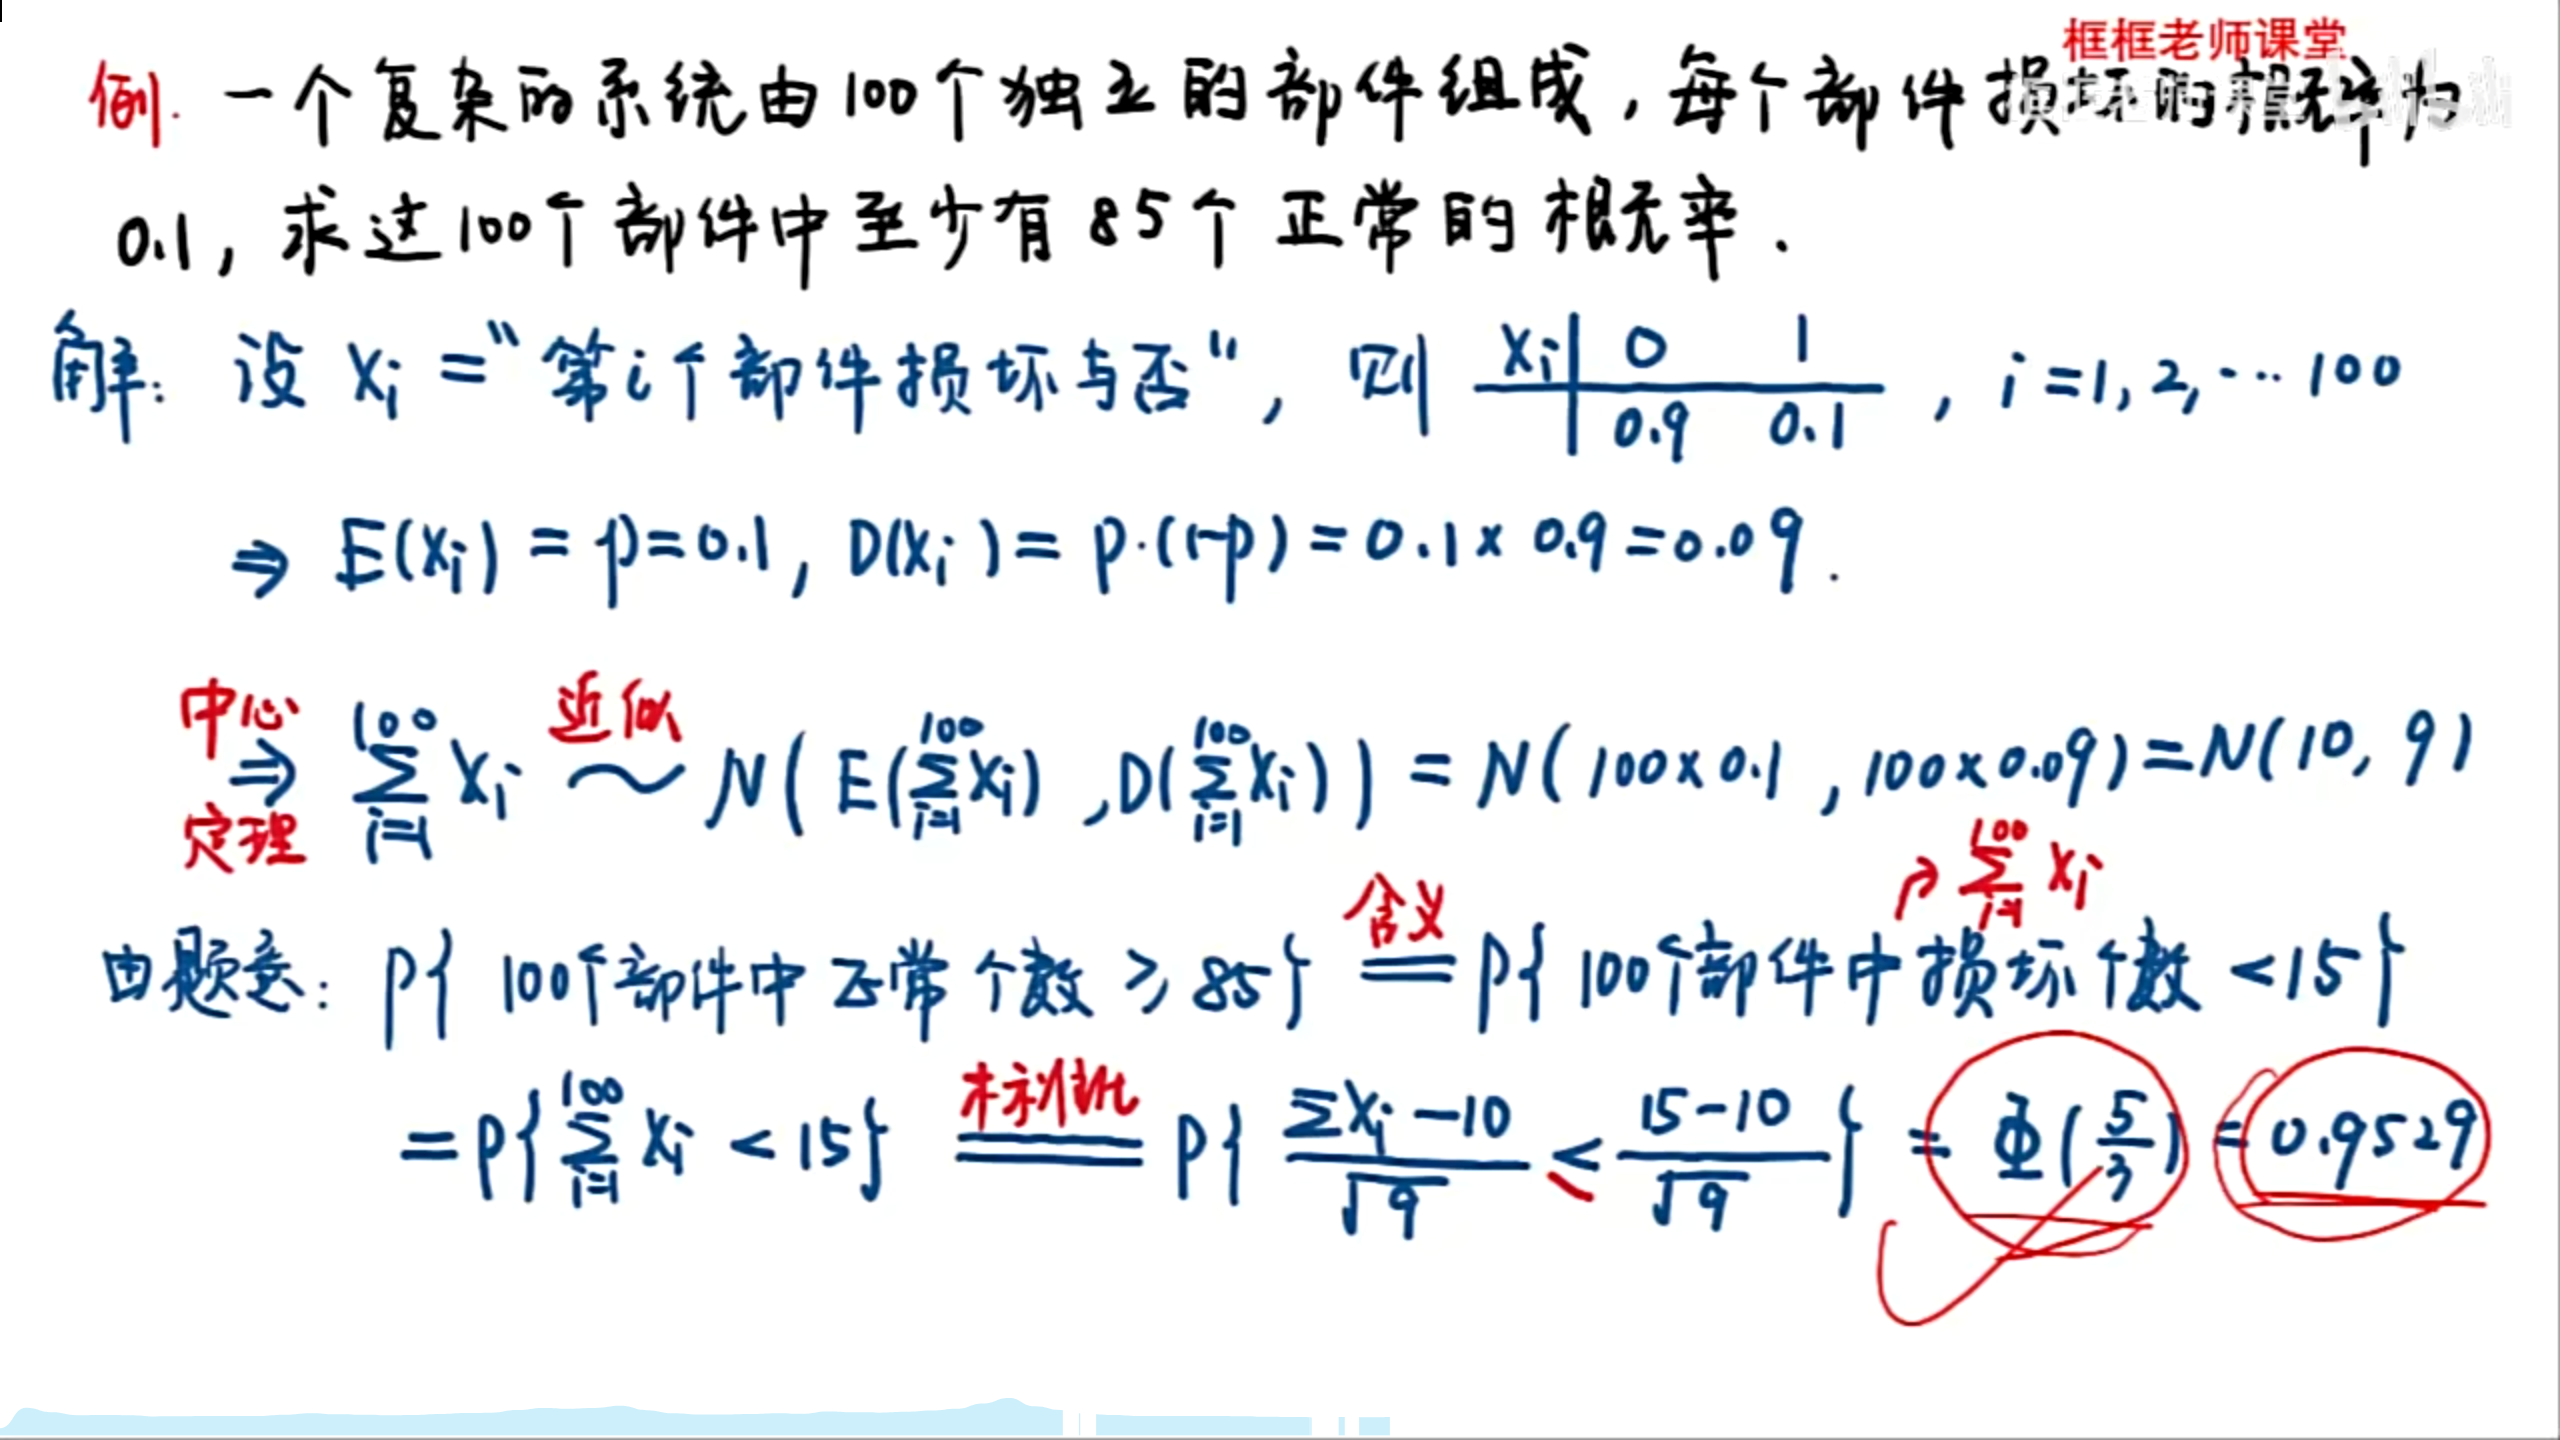 框框老师课堂
例. 一个复杂的系统由100个独立的部件组成，每个部件损坏的概率为
0.1，求这100个部件中至少有85个正常的概率.
解: 设 Xi = "第i个部件损坏与否"，则 Xi | 0 1 ，i=1,2,…100
0.9 0.1
⇒ E(Xi) = p=0.1, D(Xi) = p·(1-p) = 0.1×0.9=0.09.
中心 近似
⇒ ∑_{i=1}^{100} Xi ~ N( E(∑_{i=1}^{100} Xi) , D(∑_{i=1}^{100} Xi) ) = N( 100×0.1 , 100×0.09 ) = N(10, 9)
定理
含义 ∑_{i=1}^{100} Xi
由题意: P{ 100个部件中正常个数 ≥ 85} = P{ 100个部件中损坏个数 <15}
标准化
= P{∑_{i=1}^{100} Xi < 15} = P{ (∑Xi - 10)/√9 < (15-10)/√9 } = Φ(5/3) = 0.9529